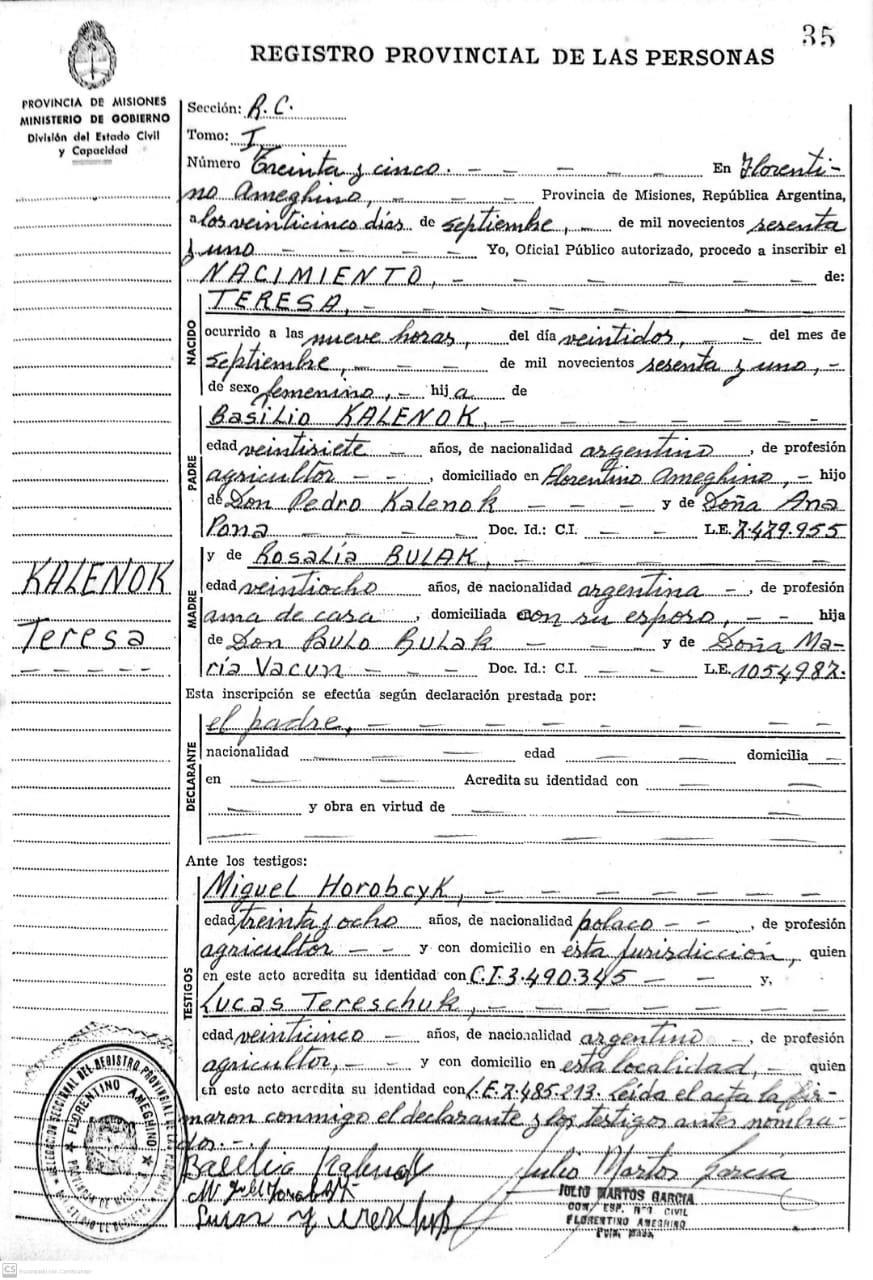 35
REGISTRO PROVINCIAL DE LAS PERSONAS
PROVINCIA DE MISIONES
MINISTERIO DE GOBIERNO
División del Estado Civil
y Capacidad
Sección: R.C.
Tomo: I.
Número Treinta y cinco. - - - - - En Florenti-
no Ameghino, - - - Provincia de Misiones, República Argentina,
a los veinticinco días de septiembre, - de mil novecientos sesenta
y uno - - - - Yo, Oficial Público autorizado, procedo a inscribir el
NACIMIENTO, - - - - - - de:
NACIDO
TERESA, - - - - -
ocurrido a las nueve horas, del día veintidos, - - del mes de
septiembre, - - - - de mil novecientos sesenta y uno, -
de sexo femenino, - hij a de
PADRE
Basilio KALENOK, - - - - - - -
edad veintisiete - años, de nacionalidad argentino , de profesión
agricultor - - , domiciliado en Florentino Ameghino, - hijo
de Don Pedro Kalenok - - - - y de Doña Ana
Pona - - - Doc. Id.: C.I. - - L.E. 7.479.955
KALENOK
Teresa
- - - - - -
MADRE
y de Rosalía BULAK, - - - - - -
edad veintiocho años, de nacionalidad argentina - , de profesión
ama de casa , domiciliada con su esposo, - - hija
de Don Paulo Bulak - - - y de Doña Ma-
ría Vacun - - - Doc. Id.: C.I. - - L.E. 1054987.
Esta inscripción se efectúa según declaración prestada por:
DECLARANTE
el padre, - - - - - - - -
nacionalidad - - - edad - - domicilia -
en - - Acredita su identidad con - -
- - y obra en virtud de - - -
- - - - - - -
Ante los testigos:
TESTIGOS
Miguel Horobcyk, - - - - - -
edad treinta y ocho años, de nacionalidad polaco - - , de profesión
agricultor - - y con domicilio en esta jurisdicción, quien
en este acto acredita su identidad con C.I. 3.490.345 - - y,
Lucas Tereschuk, - - - - - -
edad veinticinco - años, de nacionalidad argentino - , de profesión
agricultor, - - y con domicilio en esta localidad, - quien
en este acto acredita su identidad con L.E. 7.485.213. Leída el acta la fir-
maron conmigo el declarante y los testigos antes nombra-
dos. - . -
Julio Martos García
JULIO MARTOS GARCIA
FLORENTINO AMEGHINO
DELEGACION SECCIONAL DEL REGISTRO PROVINCIAL DE LAS PERSONAS
FLORENTINO AMEGHINO
PROVINCIA DE MISIONES
CS